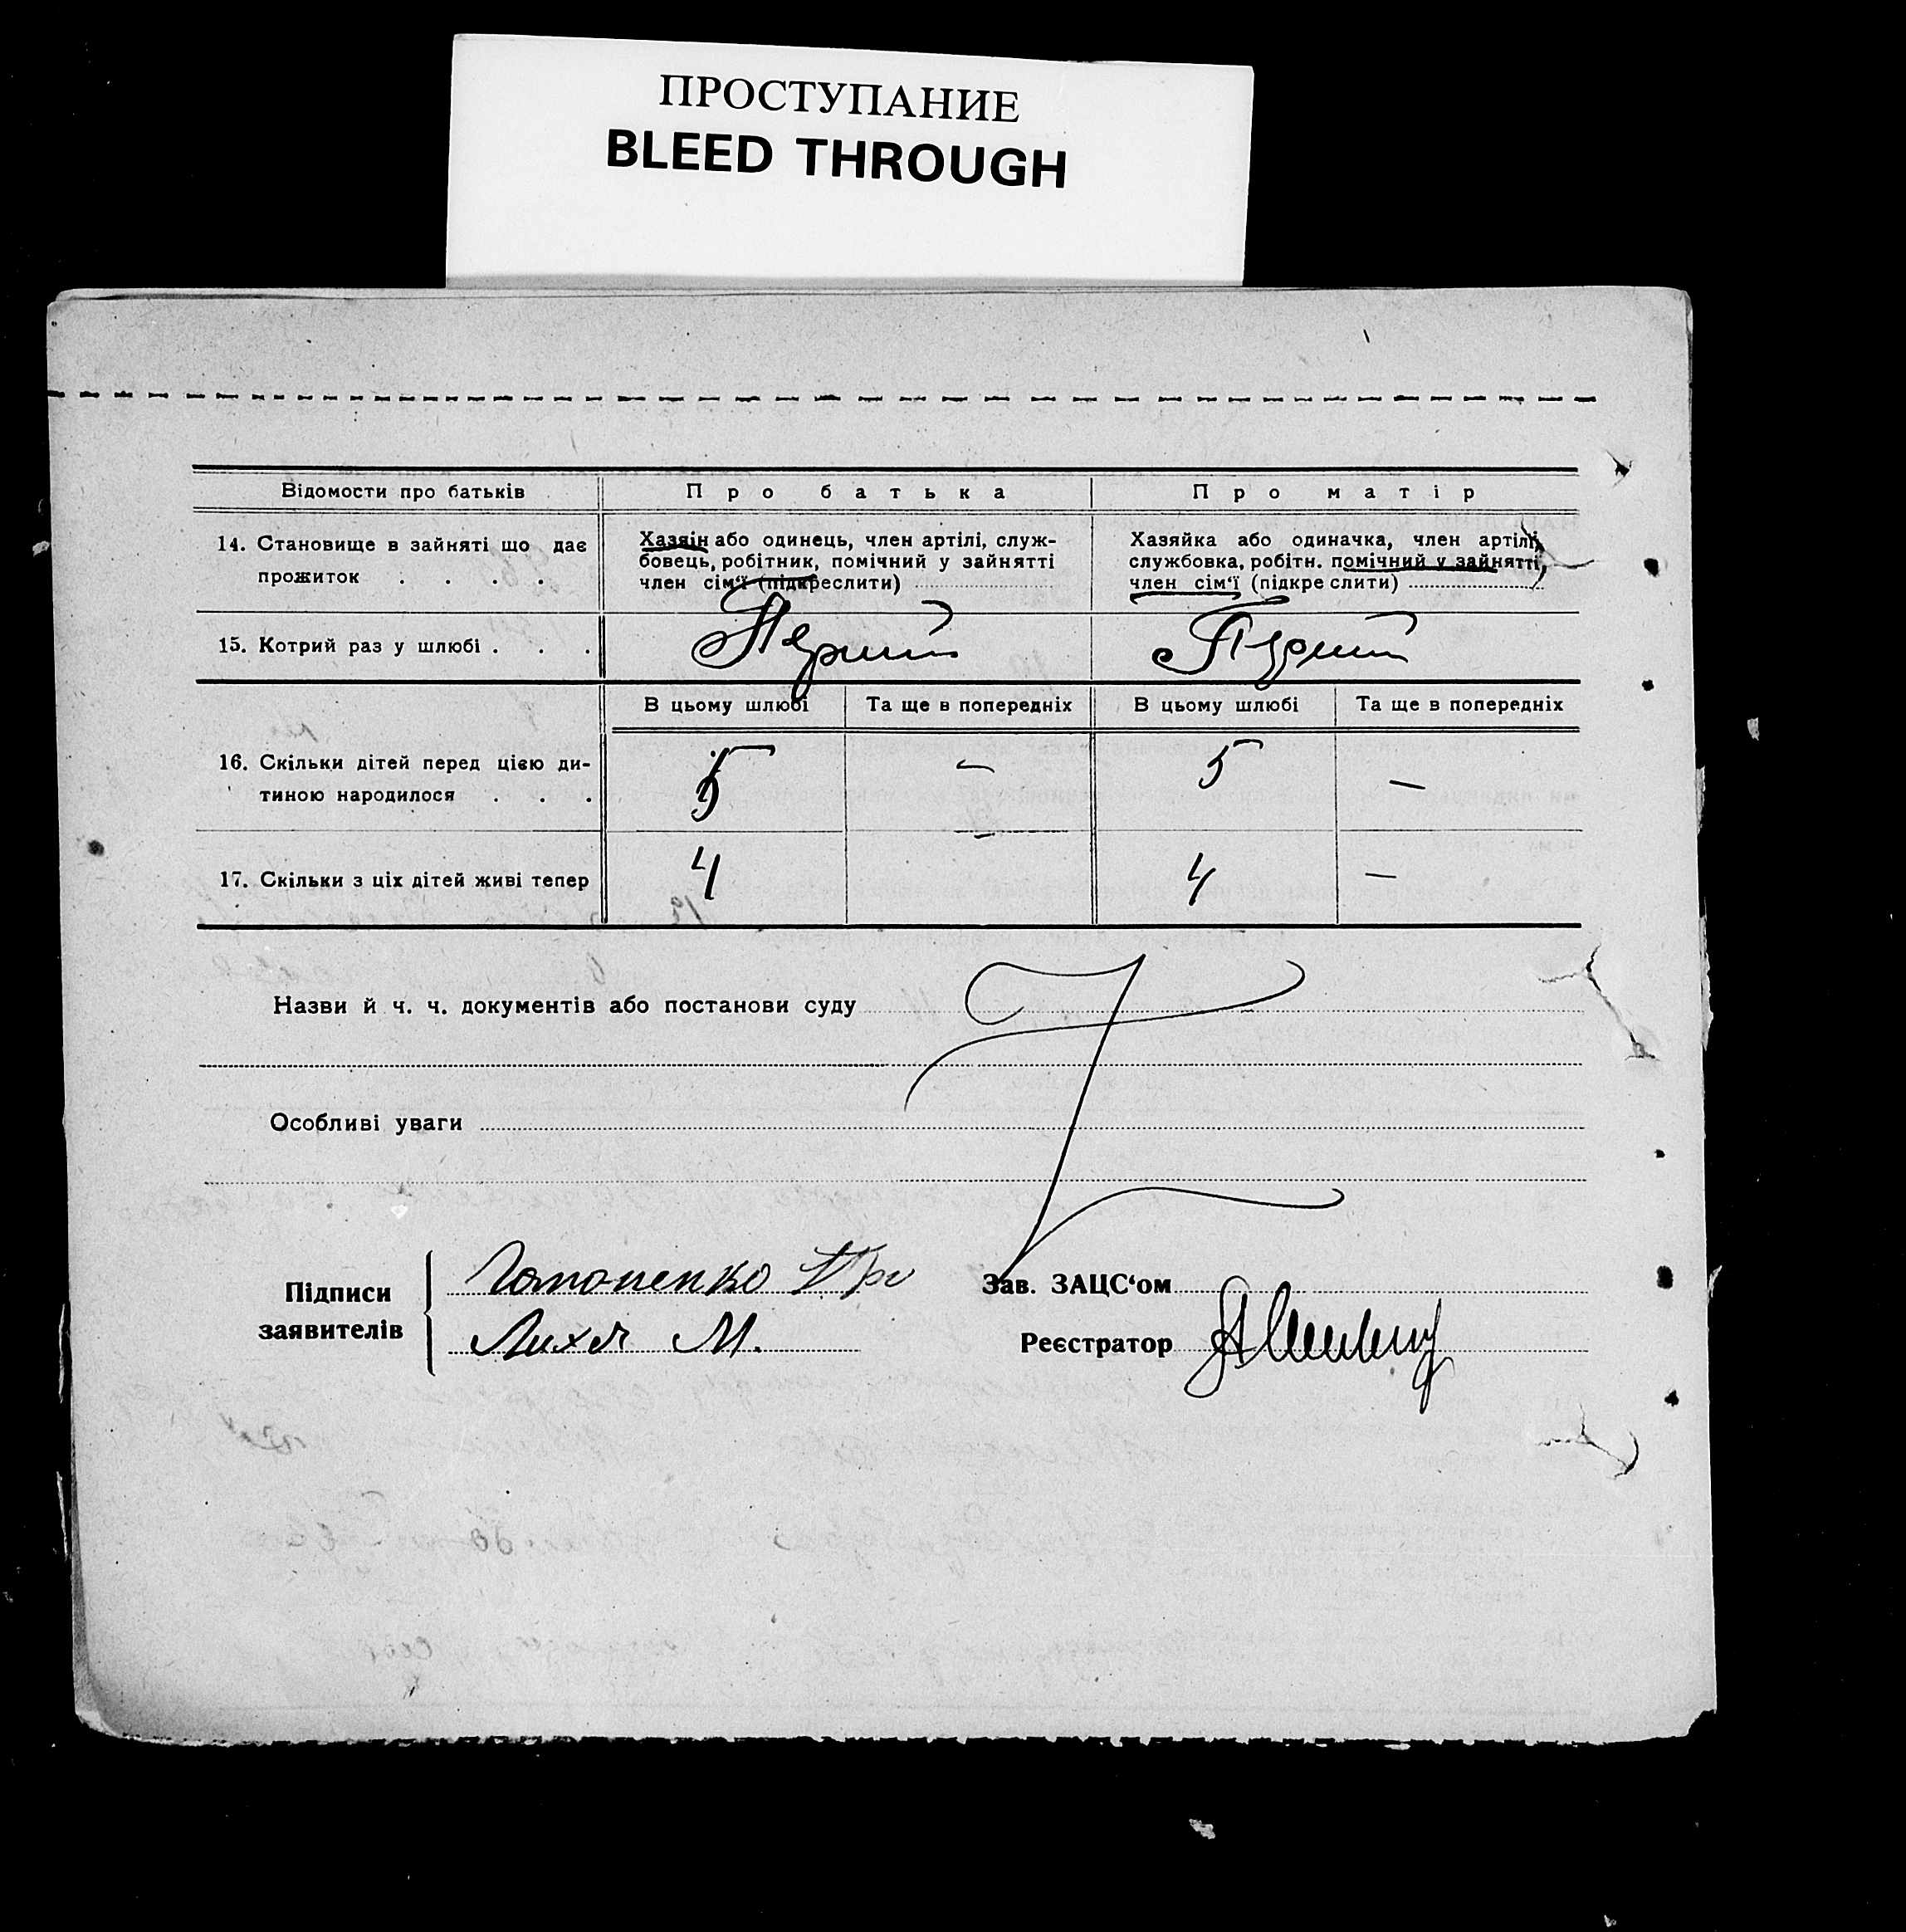 ПРОСТУПАНИЕ
BLEED THROUGH
Відомости про батьків
Про батька
Про матір
14. Становище в зайняті що дає
прожиток . . . .
Хазяїн або одинець, член артілі, служ-
бовець, робітник, помічний у зайнятті
член сім'ї (підкреслити)
Хазяйка або одиначка, член артілі,
службовка, робітн. помічний у зайнятті,
член сім'ї (підкреслити)
15. Котрий раз у шлюбі . . .
Перший
Перший
В цьому шлюбі
Та ще в попередніх
В цьому шлюбі
Та ще в попередніх
16. Скільки дітей перед цією ди-
тиною народилося . . .
5
—
5
—
17. Скільки з ціх дітей живі тепер
4
—
4
—
Назви й ч. ч. документів або постанови суду
Особливі уваги
Підписи
заявителів
Лихей М.
Зав. ЗАЦС'ом
Реєстратор